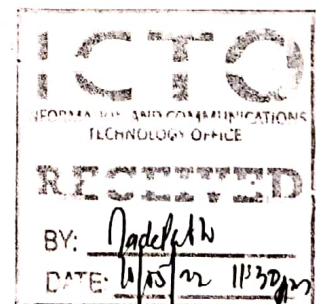 ICTO
INFORMATION AND COMMUNICATIONS
TECHNOLOGY OFFICE
RECEIVED
BY:
DATE: 22 11:30